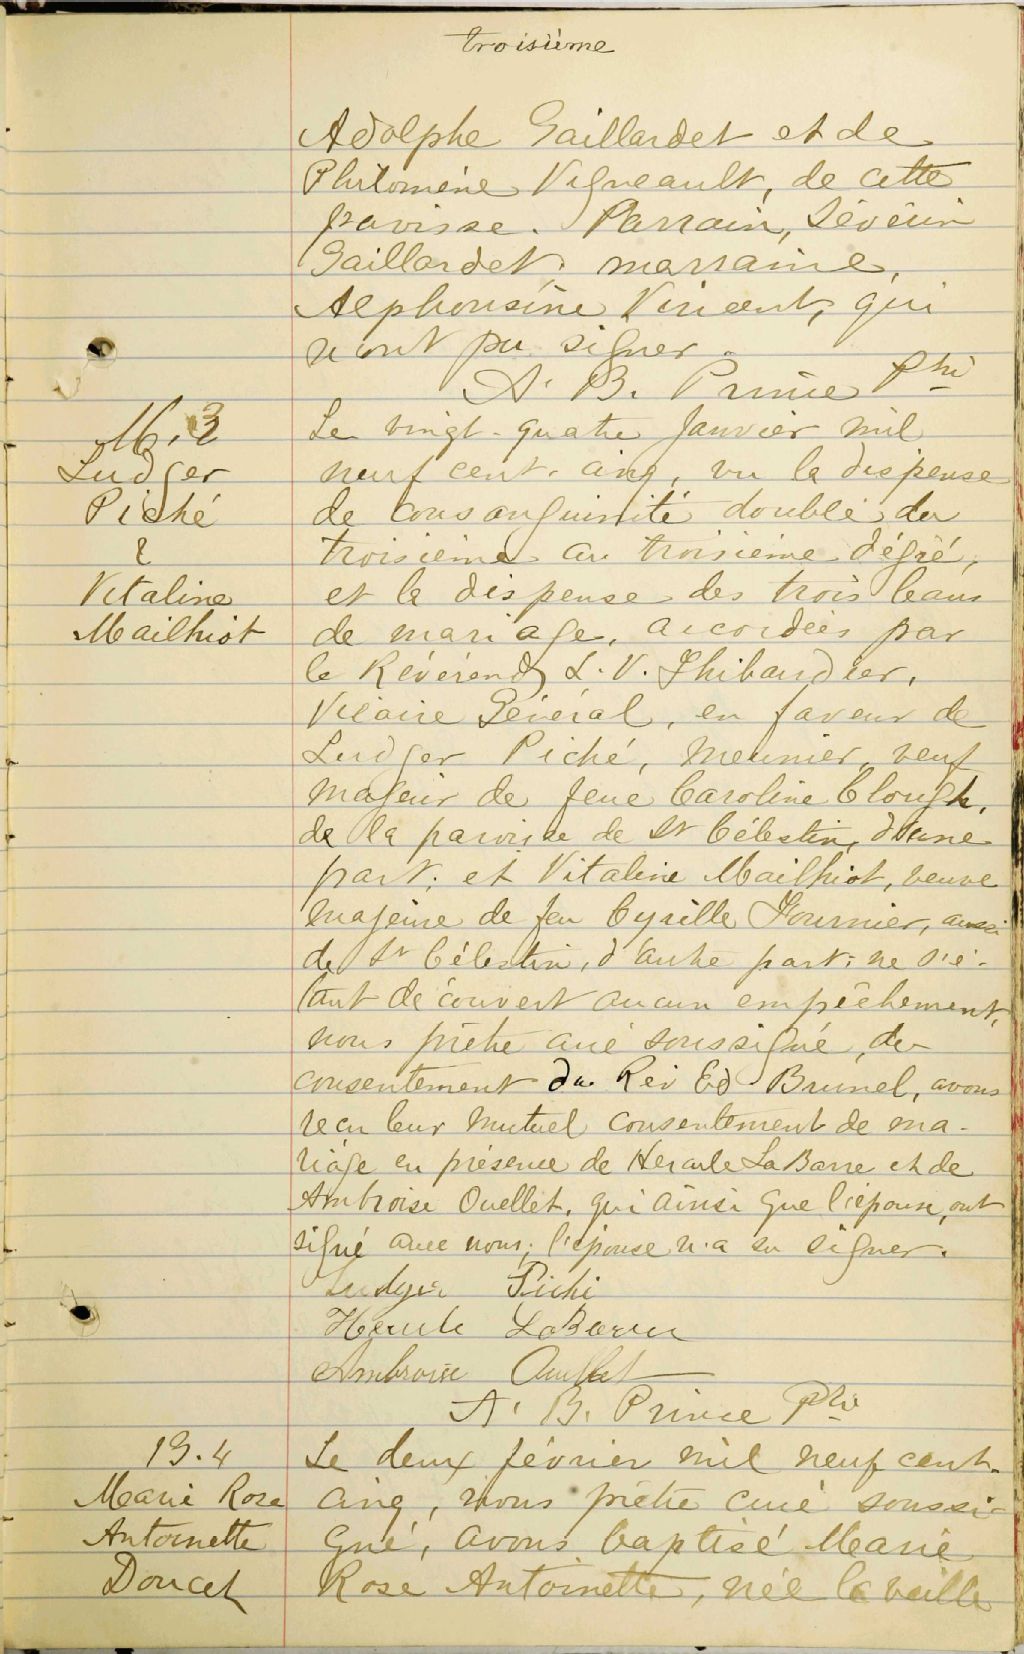 troisième
Adolphe Gaillardet et de
Philomène Vigneault, de cette
paroisse. Parrain, Sévérin
Gaillardet; marraine,
Alphonsine Vincent, qui
n'ont pu signer.
A. B. Prince Ptre
M. 3
Ludger
Piché
&
Vitaline
Mailhiot
Le vingt-quatre Janvier mil
neuf cent-cinq, vu la dispense
de consanguinité double du
troisième au troisième dégré,
et la dispense des trois bans
de mariage, accordées par
le Révérend L. V. Thibaudier,
Vicaire Général, en faveur de
Ludger Piché, Meunier, veuf
majeur de feue Caroline Clough,
de la paroisse de St Célestin, d'une
part; et Vitaline Mailhiot, veuve
majeure de feu Cyrille Fournier, aussi
de St Célestin, d'autre part; ne s'é-
tant découvert aucun empêchement,
nous prêtre curé soussigné, du
consentement du Rév Ed Brunel, avons
reçu leur mutuel consentement de ma-
riage en présence de Hercule LaBarre et de
Ambroise Ouellet, qui ainsi que l'époux, ont
signé avec nous; l'épouse n'a su signer.
Ludger Piché
Hercule LaBarre
Ambroise Ouellet
A. B. Prince Ptre
B. 4
Marie Rose
Antoinette
Doucet
Le deux février mil neuf cent-
cinq, nous prêtre curé soussi-
gné, avons baptisé Marie
Rose Antoinette, née la veille